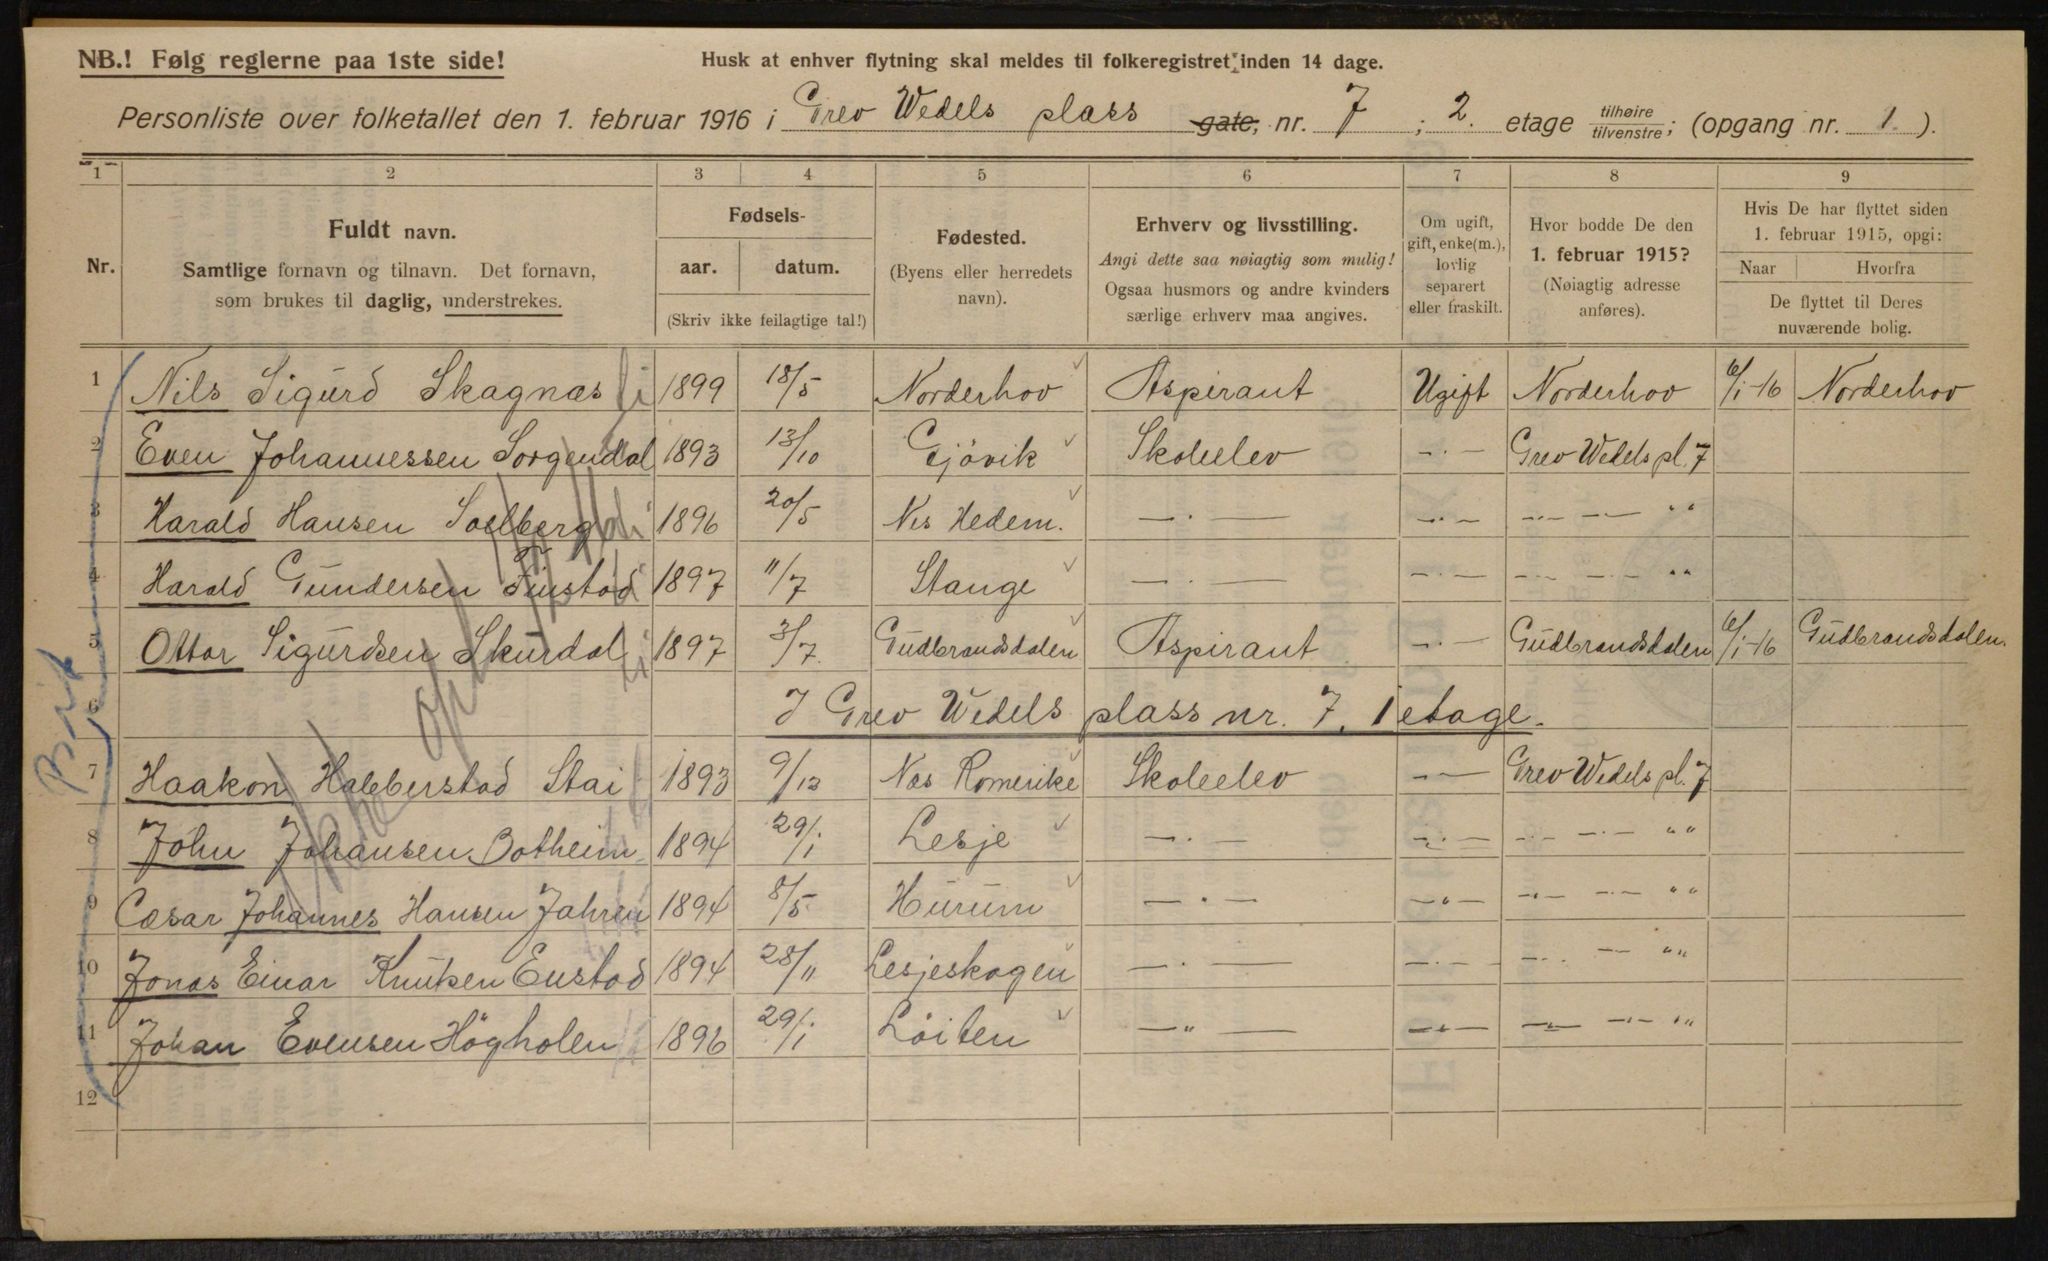 NB.! Følg reglerne paa 1ste side!
Husk at enhver flytning skal meldes til folkeregistret inden 14 dage.
Personliste over folketallet den 1. februar 1916 i Grev Wedels plass gate, nr. 7 ; 2. etage tilhøire tilvenstre; (opgang nr. 1.).
1 2 3 4 5 6 7 8 9
Nr.
Fuldt navn.
Samtlige fornavn og tilnavn. Det fornavn,
som brukes til daglig, understrekes.
Fødsels-
aar. datum.
(Skriv ikke feilagtige tal!)
Fødested.
(Byens eller herredets
navn).
Erhverv og livsstilling.
Angi dette saa nøiagtig som mulig!
Ogsaa husmors og andre kvinders
særlige erhverv maa angives.
Om ugift,
gift, enke(m.),
lovlig
separert
eller fraskilt.
Hvor bodde De den
1. februar 1915?
(Nøiagtig adresse
anføres).
Hvis De har flyttet siden
1. februar 1915, opgi:
Naar Hvorfra
De flyttet til Deres
nuværende bolig.
1 Nils Sigurd Skagnæs 1899 18/5 Norderhov Aspirant Ugift Norderhov 6/1-16 Norderhov
2 Even Johannessen Sorgendal 1893 13/10 Gjövik Skoleelev -·- Grev Wedels pl. 7
3 Harald Hansen Solberg 1896 20/5 Nes Hedem. -·- -·- -·- -·- "
4 Harald Gundersen Finstad 1897 11/7 Stange -·- -·- -·- -·- "
5 Ottar Sigurdsen Skurdal 1897 3/7 Gudbrandsdalen Aspirant -·- Gudbrandsdalen 6/1-16 Gudbrandsdalen.
6 I Grev Wedels plass nr. 7, 1 etage.
7 Haakon Halberstad Stai 1893 9/12 Nes Romerike Skoleelev -·- Grev Wedels pl. 7
8 John Johansen Botheim 1894 29/1 Lesje -·- -·- -·- -·- "
9 Cæsar Johannes Hansen Jahren 1894 8/5 Hurum -·- -·- -·- -·- "
10 Jonas Einar Knutsen Enstad 1894 28/11 Lesjeskogen -·- -·- -·- -·- "
11 Johan Evensen Högholen 1896 29/1 Löiten -"- -·- -·- -·- "
12